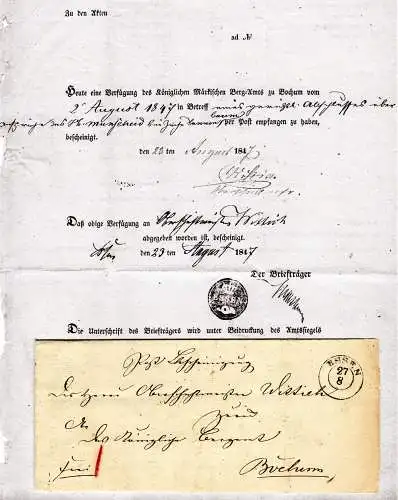 Zu den Akten
ad №
Heute eine Verfügung des Königlichen Märkischen Berg-Amts zu Bochum vom
2t August 1847 in Betreff eines Abschlusses über
per Post empfangen zu haben,
bescheinigt.
den 23 ten August 1847
Daß obige Verfügung an Oberschichtmeister Wittich
abgegeben worden ist, bescheinigt.
Essen den 23 ten August 1847
Der Briefträger
Die Unterschrift des Briefträgers wird unter Beidruckung des Amtssiegels
ESSEN
27
8
Post Bescheinigung
des Herrn Oberschichtmeister Wittich
An
Das Königliche Bergamt
frei
Bochum